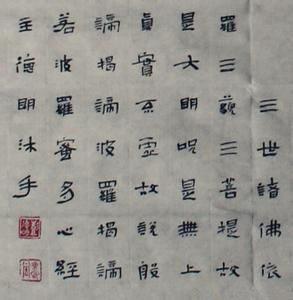 三世諸佛依
羅三藐三菩提故
是大明呪是無上
真實不虛故說般
諦揭諦波羅揭諦
若波羅蜜多心經
王德明沐手